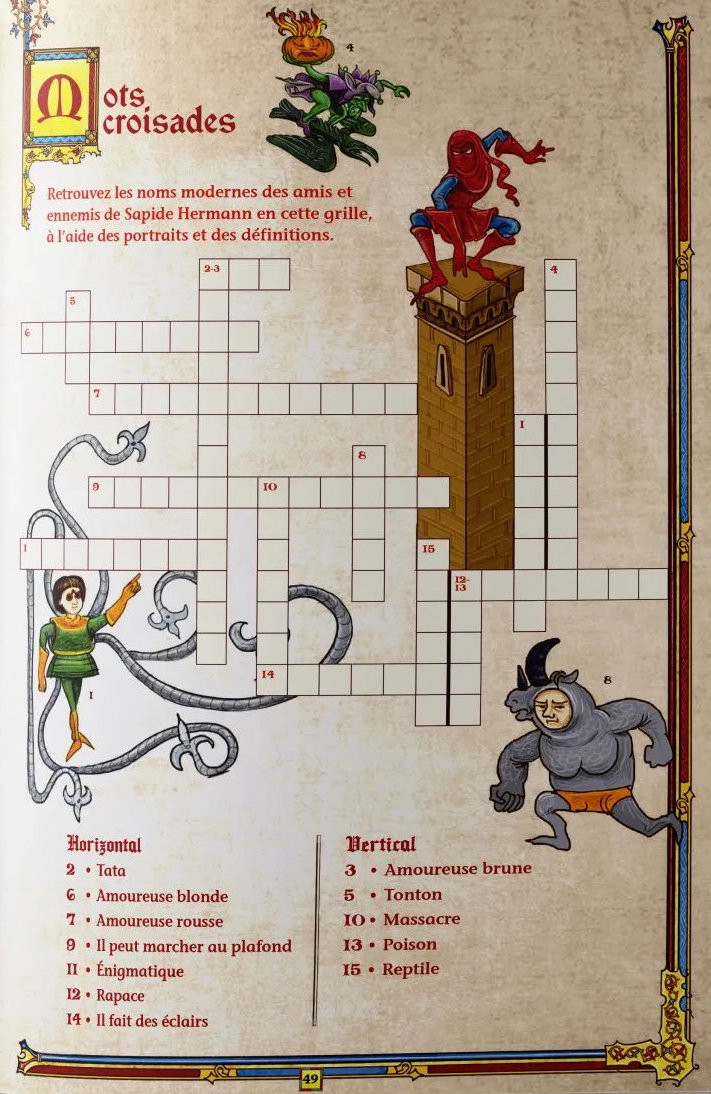 Mots
croisades
4
Retrouvez les noms modernes des amis et
ennemis de Sapide Hermann en cette grille,
à l'aide des portraits et des définitions.
2-3
4
5
6
7
1
8
9
10
1
15
12-
13
14
1
8
Horizontal
2 • Tata
6 • Amoureuse blonde
7 • Amoureuse rousse
9 • Il peut marcher au plafond
11 • Énigmatique
12 • Rapace
14 • Il fait des éclairs
Vertical
3 • Amoureuse brune
5 • Tonton
10 • Massacre
13 • Poison
15 • Reptile
49